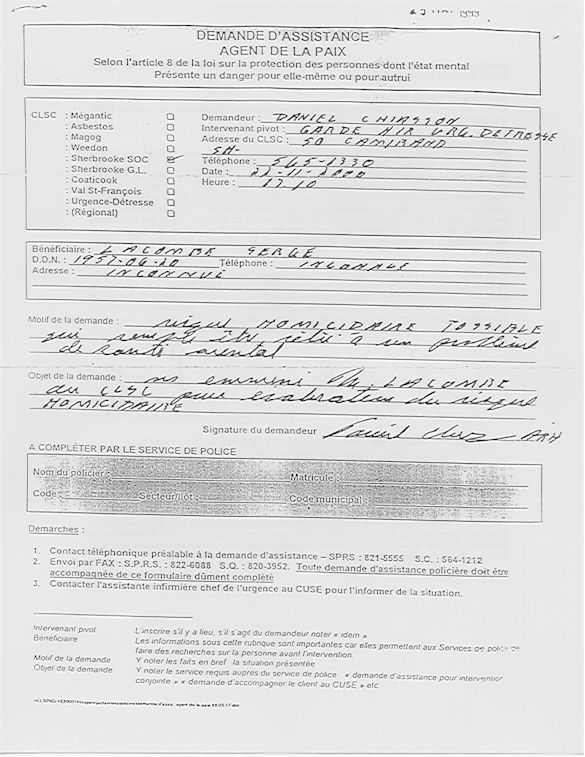 1999
DEMANDE D'ASSISTANCE
AGENT DE LA PAIX
Selon l'article 8 de la loi sur la protection des personnes dont l'état mental
Présente un danger pour elle-même ou pour autrui
CLSC : Mégantic
: Asbestos
: Magog
: Weedon
: Sherbrooke SOC
: Sherbrooke G.L.
: Coaticook
: Val St-François
: Urgence-Détresse
: (Régional)
Demandeur : DANIEL CHIASSON
Intervenant pivot : GARDE URG. DETRESSE
Adresse du CLSC : 50 CAMIRAND
SH-
Téléphone : 565-1330
Date : 22-11-2000
Heure : 1710
Bénéficiaire : LACOMBE SERGE
D.D.N. : 1957-06-20 Téléphone : INCONNUE
Adresse : INCONNUE
Motif de la demande : risque HOMICIDAIRE POSSIBLE
qui semble être relié à un problème
de santé mental
Objet de la demande : M. LACOMBE
au CLSC pour évaluation du risque
HOMICIDAIRE
Signature du demandeur
A COMPLÉTER PAR LE SERVICE DE POLICE
Nom du policier : Matricule :
Code : Secteur/îlot : Code municipal :
Demarches :
1. Contact téléphonique préalable à la demande d'assistance – SPRS : 821-5555 S.C. : 564-1212
2. Envoi par FAX : S.P.R.S. : 822-6088 S.Q. : 820-3952. Toute demande d'assistance policière doit être
accompagnée de ce formulaire dûment complété
3. Contacter l'assistante infirmière chef de l'urgence au CUSE pour l'informer de la situation.
Intervenant pivot L'inscrire s'il y a lieu, s'il s'agit du demandeur noter « idem »
Bénéficiaire Les informations sous cette rubrique sont importantes car elles permettent aux Services de police de
faire des recherches sur la personne avant l'intervention.
Motif de la demande Y noter les faits en bref la situation présentée
Objet de la demande Y noter le service requis auprès du service de police « demande d'assistance pour intervention
conjointe » « demande d'accompagner le client au CUSE » etc